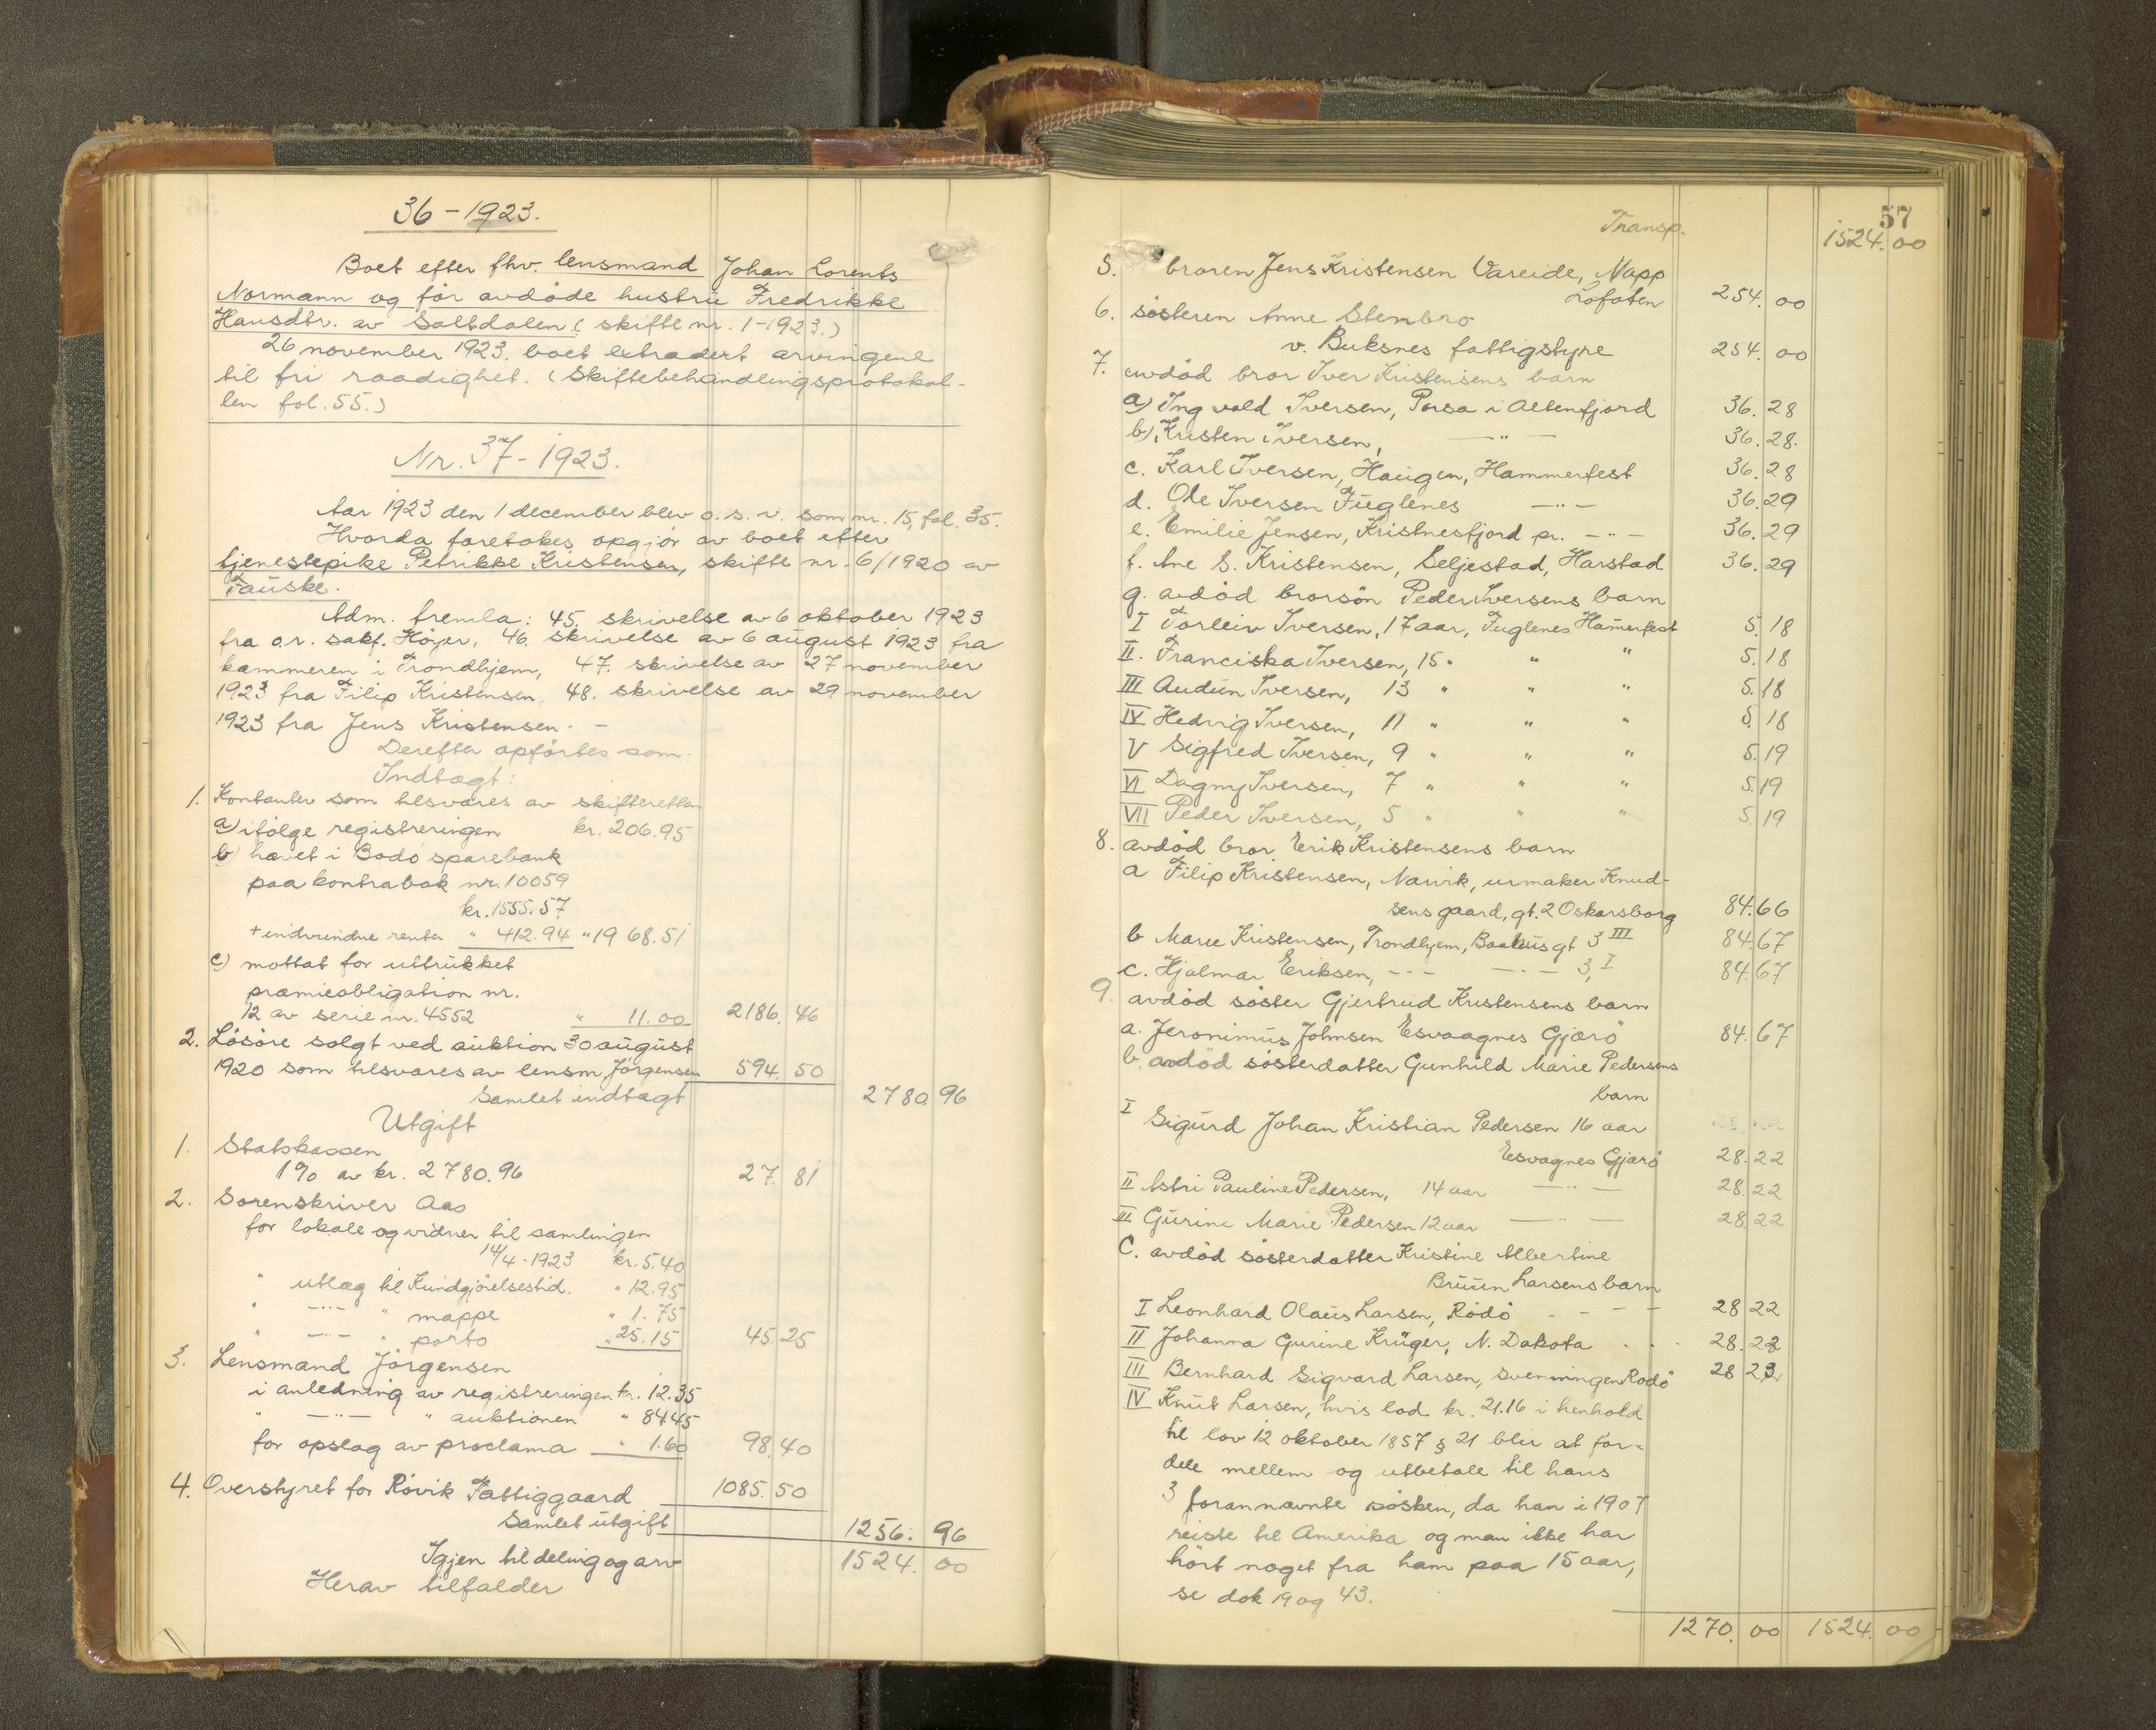 36-1923.
Boet efter fhv. lensmand Johan Lorents
Normann og før avdøde hustru Fredrikke
Hansdtr. av Saltdalen (skifte nr. 1-1923.)
26 november 1923. boet extradert arvingene
til fri raadighet. (Skiftebehandlingsprotokol-
len fol. 55.)
Nr. 37-1923.
Aar 1923 den 1 december blev o.s.v. som nr. 15, fol. 35.
Hvorda foretokes opgjør av boet efter
tjenestepike Petrikke Kristensen, skifte nr. 6/1920 av
Fauske.
Adm. fremla: 45. skrivelse av 6 oktober 1923
fra o.r. sakf. Höyer, 46. skrivelse av 6 august 1923 fra
kammeren i Trondhjem, 47. skrivelse av 27 november
1923 fra Filip Kristensen, 48. skrivelse av 29 november
1923 fra Jens Kristensen. -
Derefter opförtes som
Indtægt:
1. Kontanter som tilsvares av skifteretten
a) ifölge registreringen kr. 206.95
b) hævet i Bodö sparebank
paa kontrabok nr. 10059
kr. 1555.57
+ indvundne renter " 412.94 " 1968.51
c) mottat for uttrukket
præmieobligation nr.
12 av serie nr. 4552 " 11.00 2186.46
2. Lösöre solgt ved auktion 30 august
1920 som tilsvares av lensm. Jörgensen 594.50
Samlet indtægt 2780.96
Utgift
1. Statskassen
1% av kr. 2780.96 27.81
2. Sorenskriver Aas
for lokale og vidner til samlingen
14/4-1923 kr. 5.40
" utlæg til Kundgjörelsestid. " 12.95
" -"- " mappe " 1.75
" -"- " porto " 25.15 45.25
3. Lensmand Jörgensen
i anledning av registreringen kr. 12.35
" -"- " auktionen " 84.45
for opslag av proclama " 1.60 98.40
4. Overstyret for Røvik Fattiggaard 1085.50
Samlet utgift 1256.96
Igjen til deling og arv 1524.00
Herav tilfalder
57
Transp. 1524.00
5. broren Jens Kristensen Vareide, Napp
Lofoten 254.00
6. søsteren Anne Stenbro
v. Buksnes fattigstyre 254.00
7. avdöd bror Iver Kristensens barn
a) Ingvald Iversen, Porsa i Altenfjord 36.28
b) Kristen Iversen, -"- 36.28.
c. Karl Iversen, Haugen, Hammerfest 36.28
d. Ole Iversen Fuglenes -"- 36.29
e. Emilie Jensen, Kristnesfjord pr. -"- 36.29
f. Ane S. Kristensen, Seljestad, Harstad 36.29
g. avdöd brorsön Peder Iversens barn
I Torleiv Iversen, 17 aar, Fuglenes Hamerfest 5.18
II. Franciska Iversen, 15 " " " 5.18
III Audun Iversen, 13 " " " 5.18
IV Hedvig Iversen, 11 " " " 5.18
V Sigfred Iversen, 9 " " " 5.19
VI Dagny Iversen, 7 " " " 5.19
VII Peder Iversen, 5 " " " 5.19
8. avdöd bror Erik Kristensens barn
a Filip Kristensen, Narvik, urmaker Knud-
sens gaard, gt. 2 Oskarsborg 84.66
b Marie Kristensen, Trondhjem, Baahusgt 3 III 84.67
c. Hjalmar Eriksen, --- -"- 3, I 84.67
9. avdöd söster Gjertrud Kristensens barn
a. Jeronimus Johnsen Esvaagnes Gjærö 84.67
b. avdöd sösterdatter Gunhild Marie Pedersens
barn
I Sigurd Johan Kristian Pedersen 16 aar
Esvagnes Gjærö 28.22
II Astri Pauline Pedersen, 14 aar -"- 28.22
III Gurine Marie Pedersen 12 aar -"- 28.22
C. avdöd sösterdatter Kristine Albertine
Bruun Larsens barn
I Leonhard Olaus Larsen, Rödö - - - - 28.22
II Johanna Gurine Krüger, N. Dakota . . . 28.23
III Bernhard Sigvard Larsen, Svenningen Rödö 28.23
IV Knut Larsen, hvis lod kr. 21.16 i henhold
til lov 12 oktober 1857 § 21 blir at for-
dele mellem og utbetale til hans
3 forannævnte søsken, da han i 1907
reiste til Amerika og man ikke har
hört noget fra ham paa 15 aar,
se dok 19 og 43.
1270.00 1524.00